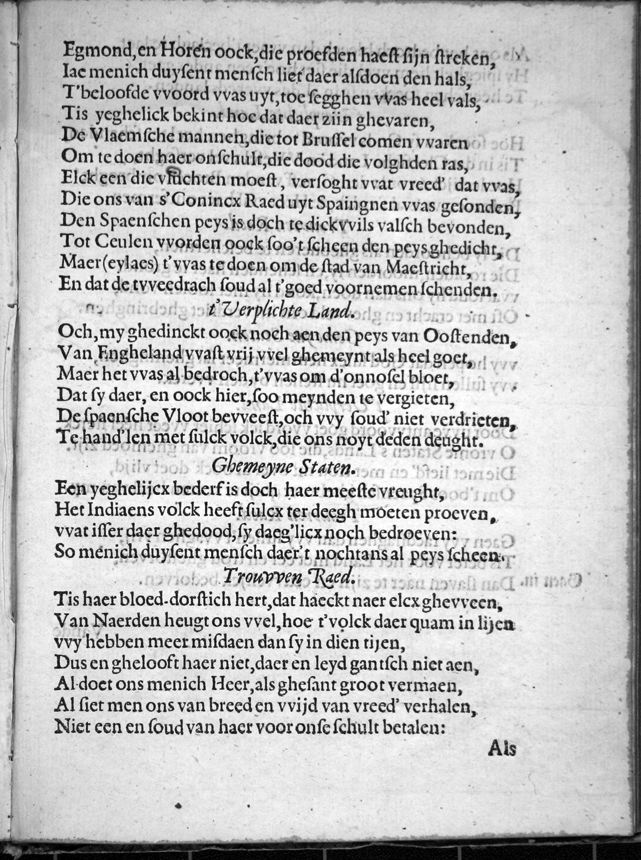 Egmond, en Horen oock, die proefden haest sijn streken,
Iae menich duysent mensch liet daer alsdoen den hals,
T'beloofde vvoord vvas uyt, toe segghen vvas heel vals,
Tis yeghelick bekint hoe dat daer zijn ghevaren,
De Vlaemsche mannen, die tot Brussel comen vvaren
Om te doen haer onschult, die dood die volghden ras,
Elck een die vluchten moest, versoght vvat vreed' dat vvas,
Die ons van s'Conincx Raed uyt Spaingnen vvas gesonden,
Den Spaenschen peys is doch te dickvvils valsch bevonden,
Tot Ceulen vvorden oock soo't scheen den peys ghedicht,
Maer (eylaes) t'vvas te doen om de stad van Maestricht,
En dat de tvveedrach soud al t'goed voornemen schenden.
t'Verplichte Land.
Och, my ghedinckt oock noch aen den peys van Oostenden,
Van Engheland vvast vrij vvel ghemeynt als heel goet,
Maer het vvas al bedroch, t'vvas om d'onnosel bloet,
Dat sy daer, en oock hier, soo meynden te vergieten,
De spaensche Vloot bevveest, och vvy soud' niet verdrieten,
Te hand'len met sulck volck, die ons noyt deden deught.
Ghemeyne Staten.
Een yeghelijcx bederf is doch haer meeste vreught,
Het Indiaens volck heeft sulcx ter deegh moeten proeven,
vvat isser daer ghedood, sy daeg'licx noch bedroeven:
So menich duysent mensch daer't nochtans al peys scheen.
Trouvven Raed.
Tis haer bloed-dorstich hert, dat haeckt naer elcx ghevveen,
Van Naerden heugt ons vvel, hoe t'volck daer quam in lijen
vvy hebben meer misdaen dan sy in dien tijen,
Dus en ghelooft haer niet, daer en leyd gantsch niet aen,
Al doet ons menich Heer, als ghesant groot vermaen,
Al siet men ons van breed en vvijd van vreed' verhalen,
Niet een en soud van haer voor onse schult betalen:
Als